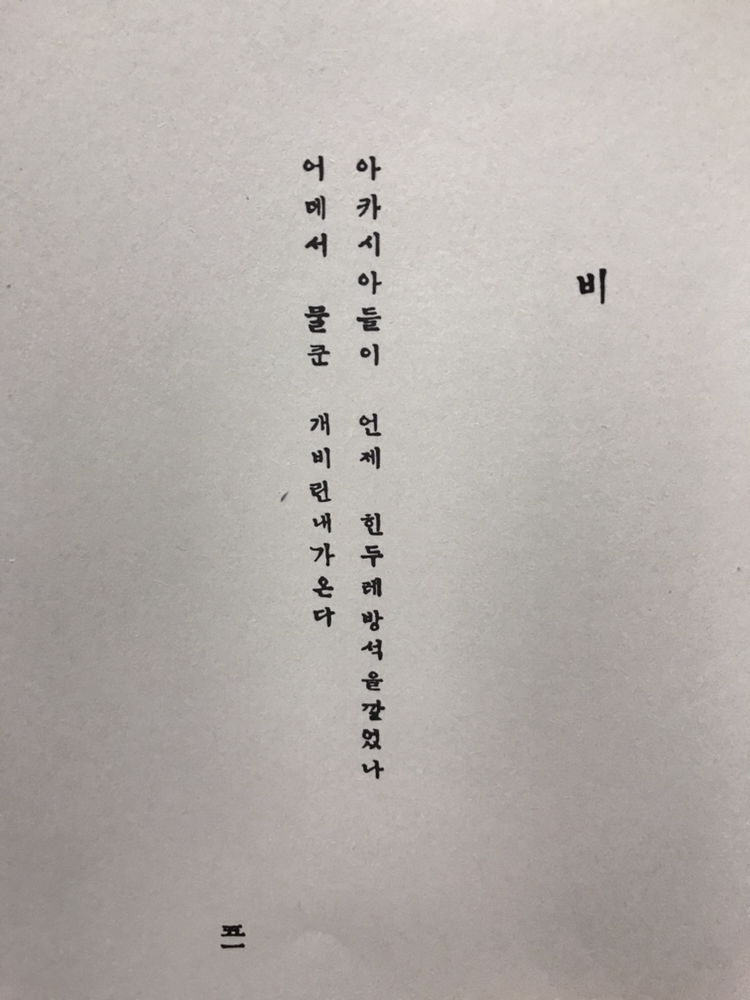 비
아카시아들이 언제 힌두레방석을깔었나
어데서 물쿤 개비린내가온다